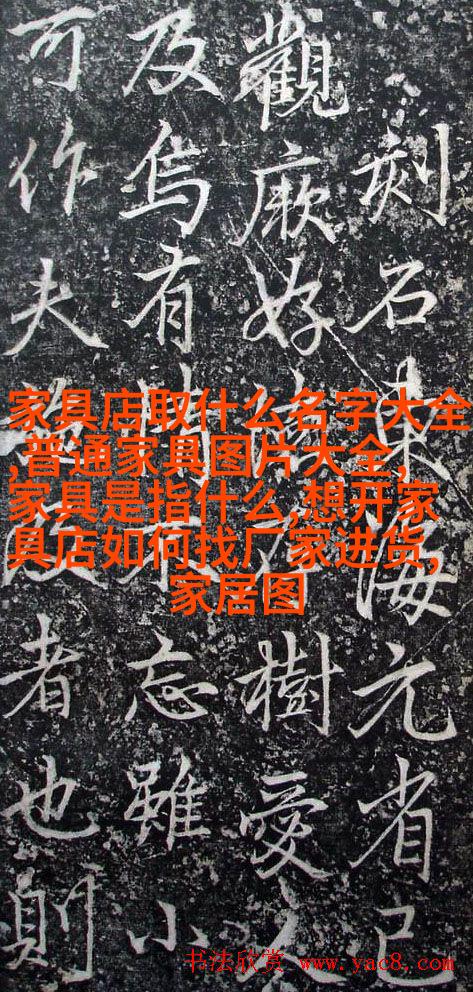 刻石東海元省己
觀厥好樹愛
及有忘雖小
可作夫者也則
家具店取什么名字大全
,普通家具图片大全,
家具是指什么,想开家
具店如何找厂家进货,
家居图
书法欣赏 www.yac8.com